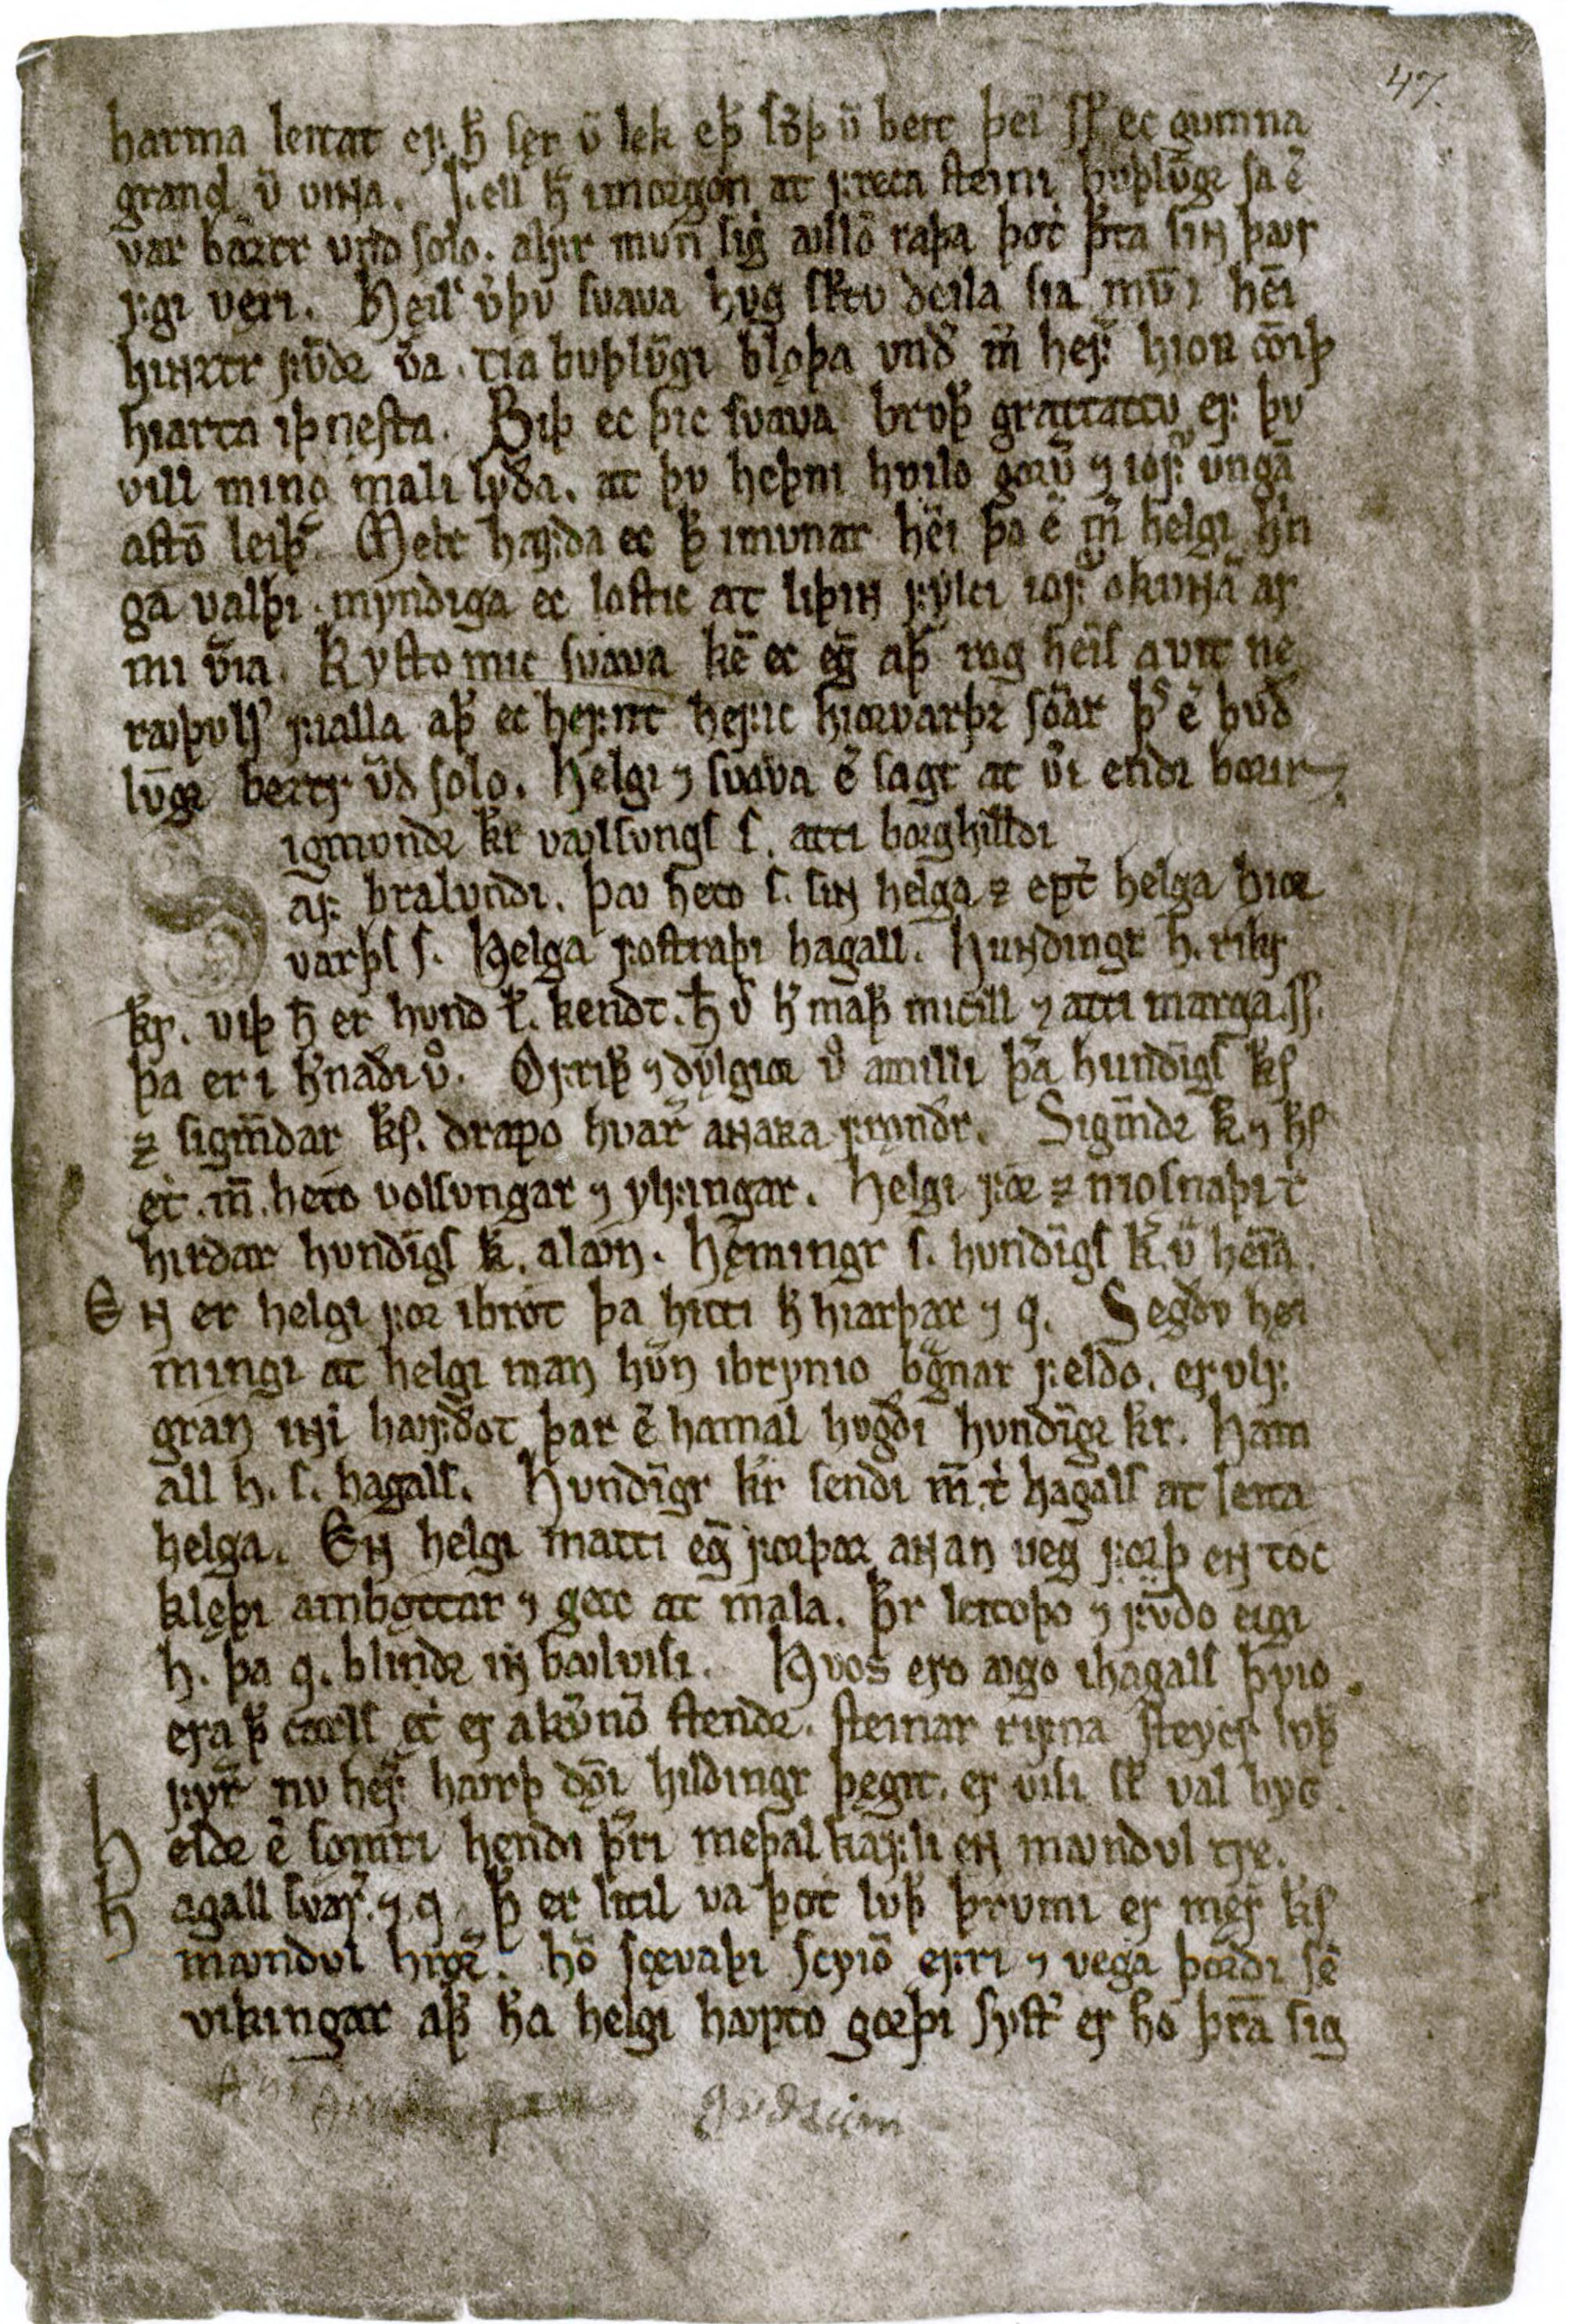 47.
harma leitat ef h̅ sęr v̅ lek eþ svþ v̅ beit þei sk̅ ec gumna
grand v̅ viɴa. Fell h̅ imorgon at freca steini buþlv̅gr sa e̅
var baztr vnd solo. allir mun sig ꜹllo raþa þot þta siɴ þꜹrf
gi veri. Heil v̅þv svava hvg sk̅tv deila sia mv̅ i hei
hiɴztr fv̅dr v̅a. tia buþlv̅gi blǫþa vnd m̅ hefr hior co̅iþ
hiarta iþ nęsta. Biþ ec þic svava brvþ grattattv ef þv
vill mino mali lyða. at þv heþni hvilo gorv̅ ⁊ iofr vnga̅
asto̅ leiþ. Melt hafda ec þ imvnar hei þa e̅ m̅ helgi h̅n
ga valþi. myndiga ec lostic at liþiɴ fylci iofr okvɴa̅ ar
mi v̅ia. Kysto mic svava ke̅ ec eg̅ aþ rog heis a vit ne
rꜹþvls fialla aþ ec hefnt hefic hiorvarþz so̅ar þs e̅ bvð
lv̅gr beztr vnd solo. Helgi ⁊ svava e̅ sagt at v̅i endr borin
Sigmvndr kr vꜹlsvngs s. atti borghilldi
af bralvndi. þꜹ heto s. siɴ helga ⁊ ept̅ helga hior
varþs s. Helga fostraþi hagall. Hunding̅r h. rikr
kr. viþ h̅ er hvnd l. kendt. h̅ v̅ h̅maþ micill ⁊ atti marga ss.
þa er i h̅naði v̅o. Ofriþ ⁊ dylgior v̅o amilli þa̅ hundi̅gs ks
⁊ sigm̅dar ks. drapo hvar̅ aɴaʀa frǫndr. Sigm̅dr k. ⁊ hs
et̅. m̅. heto volsvngar ⁊ ylfingar. Helgi for ⁊ niosnaþi t̅
hirdar hvndi̅gs k. a lꜹn. Hęmingr s. hvndi̅gs k. v̅ heīa.
Eɴ er helgi for ibrot þa hitti h̅ hiarþar ⁊ q. Segðv hęi
mingi at helgi man hv̅n ibrynio b̅gnar feldo. er vlf
gran iɴi hꜹfðot þar e̅ hamal hvgði hvndi̅gr kr. Ham
all h. s. hagals. Hvndi̅gr kr sendi m̅. t̅ hagals at leita
helga. Eɴ helgi matti eg̅ forþaz aɴan veg forþ eɴ toc
klęþi ambǫttar ⁊ gecc at mala. þr leitoþo ⁊ fv̅do eigi
h. þa q. blindr iɴ bꜹlvisi. Hvos ero ꜹgo ihagals þyio
era þ carls et̅ er a kv̅no̅ stendr. steinar rifna steycr lvþ
fyr nv hefr hꜹrþ do̅i hildingr þegit. er visi sk̅ val byc
heldr e̅ sǫmri hendi þri meþal kafli eɴ mꜹndvl tre.
hagall svar. ⁊ q. þ er litil va þot lvþ þrvmi er męr ks
mꜹndvl hror. ho̅ scęvaþi scyio̅ efri ⁊ vega þordi se̅
vikingar aþ h̅a helgi hꜹpto gorþi syst̅ er ho̅ þra̅ sig
gudrun